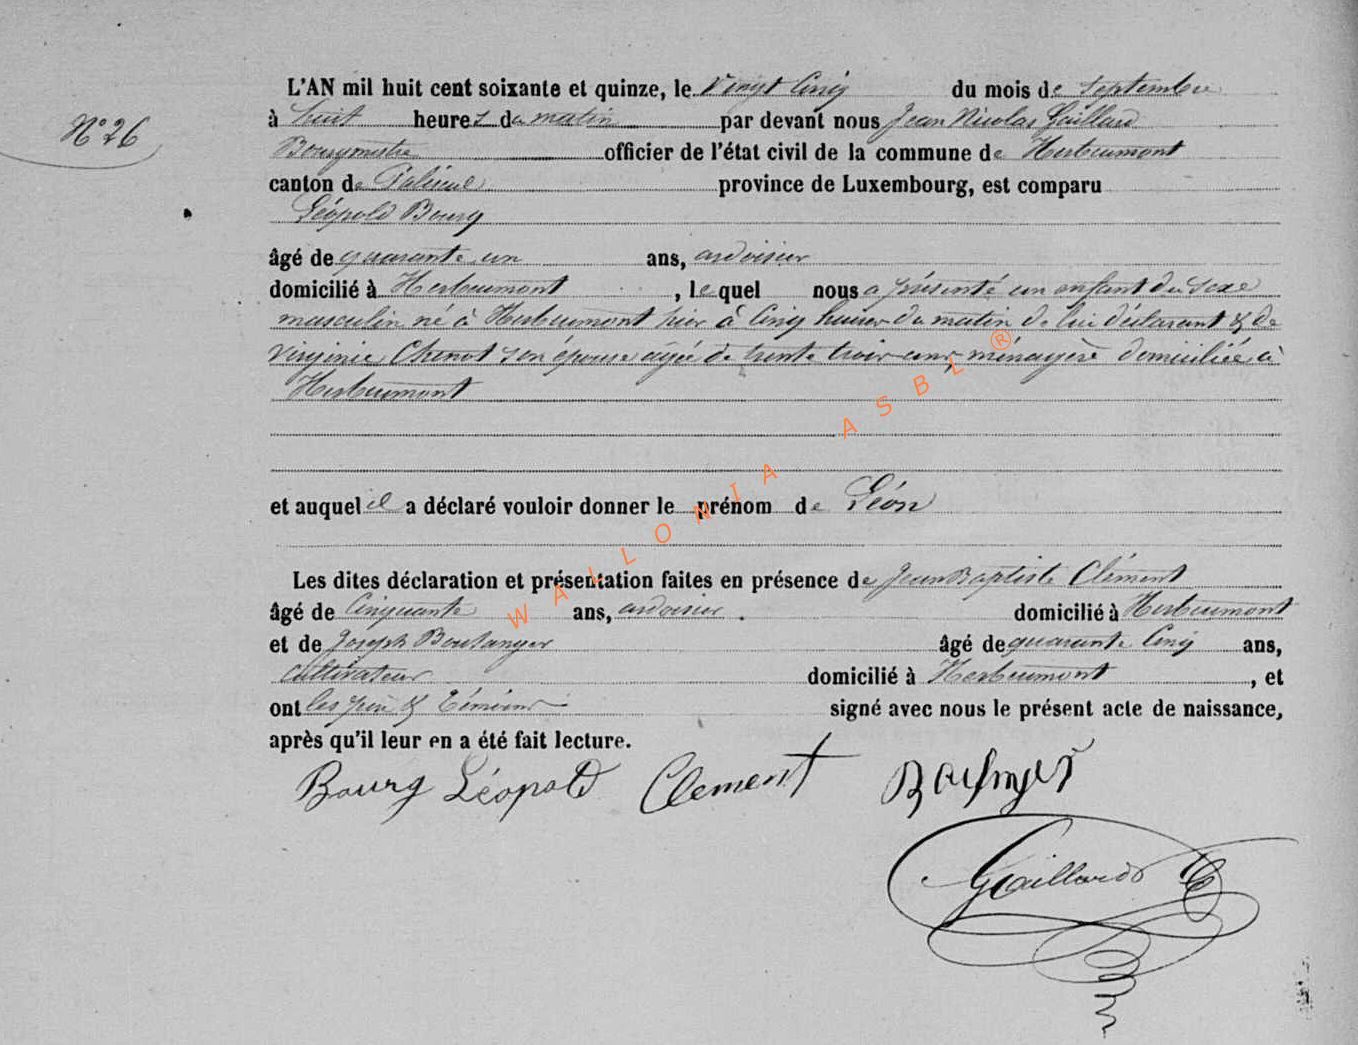 N° 26
L'AN mil huit cent soixante et quinze, le vingt cinq du mois de septembre
à huit heures du matin par devant nous Jean Nicolas Gaillard
Bourgmestre officier de l'état civil de la commune de Herbeumont
canton de Paliseul province de Luxembourg, est comparu
Léopold Bourg
âgé de quarante un ans, ardoisier
domicilié à Herbeumont, lequel nous a présenté un enfant du sexe
masculin né à Herbeumont hier à cinq heures du matin de lui déclarant & de
Virginie Chenot son épouse agée de trente trois ans, ménagère domiciliée à
Herbeumont
et auquel il a déclaré vouloir donner le prénom de Léon
Les dites déclaration et présentation faites en présence de Jean Baptiste Clément
âgé de cinquante ans, ardoisier domicilié à Herbeumont
et de Joseph Boulanger âgé de quarante cinq ans,
cultivateur domicilié à Herbeumont, et
ont les père & témoins signé avec nous le présent acte de naissance,
après qu'il leur en a été fait lecture.
Bourg Léopold Clement
Gaillard
WALLONIA ASBL ®